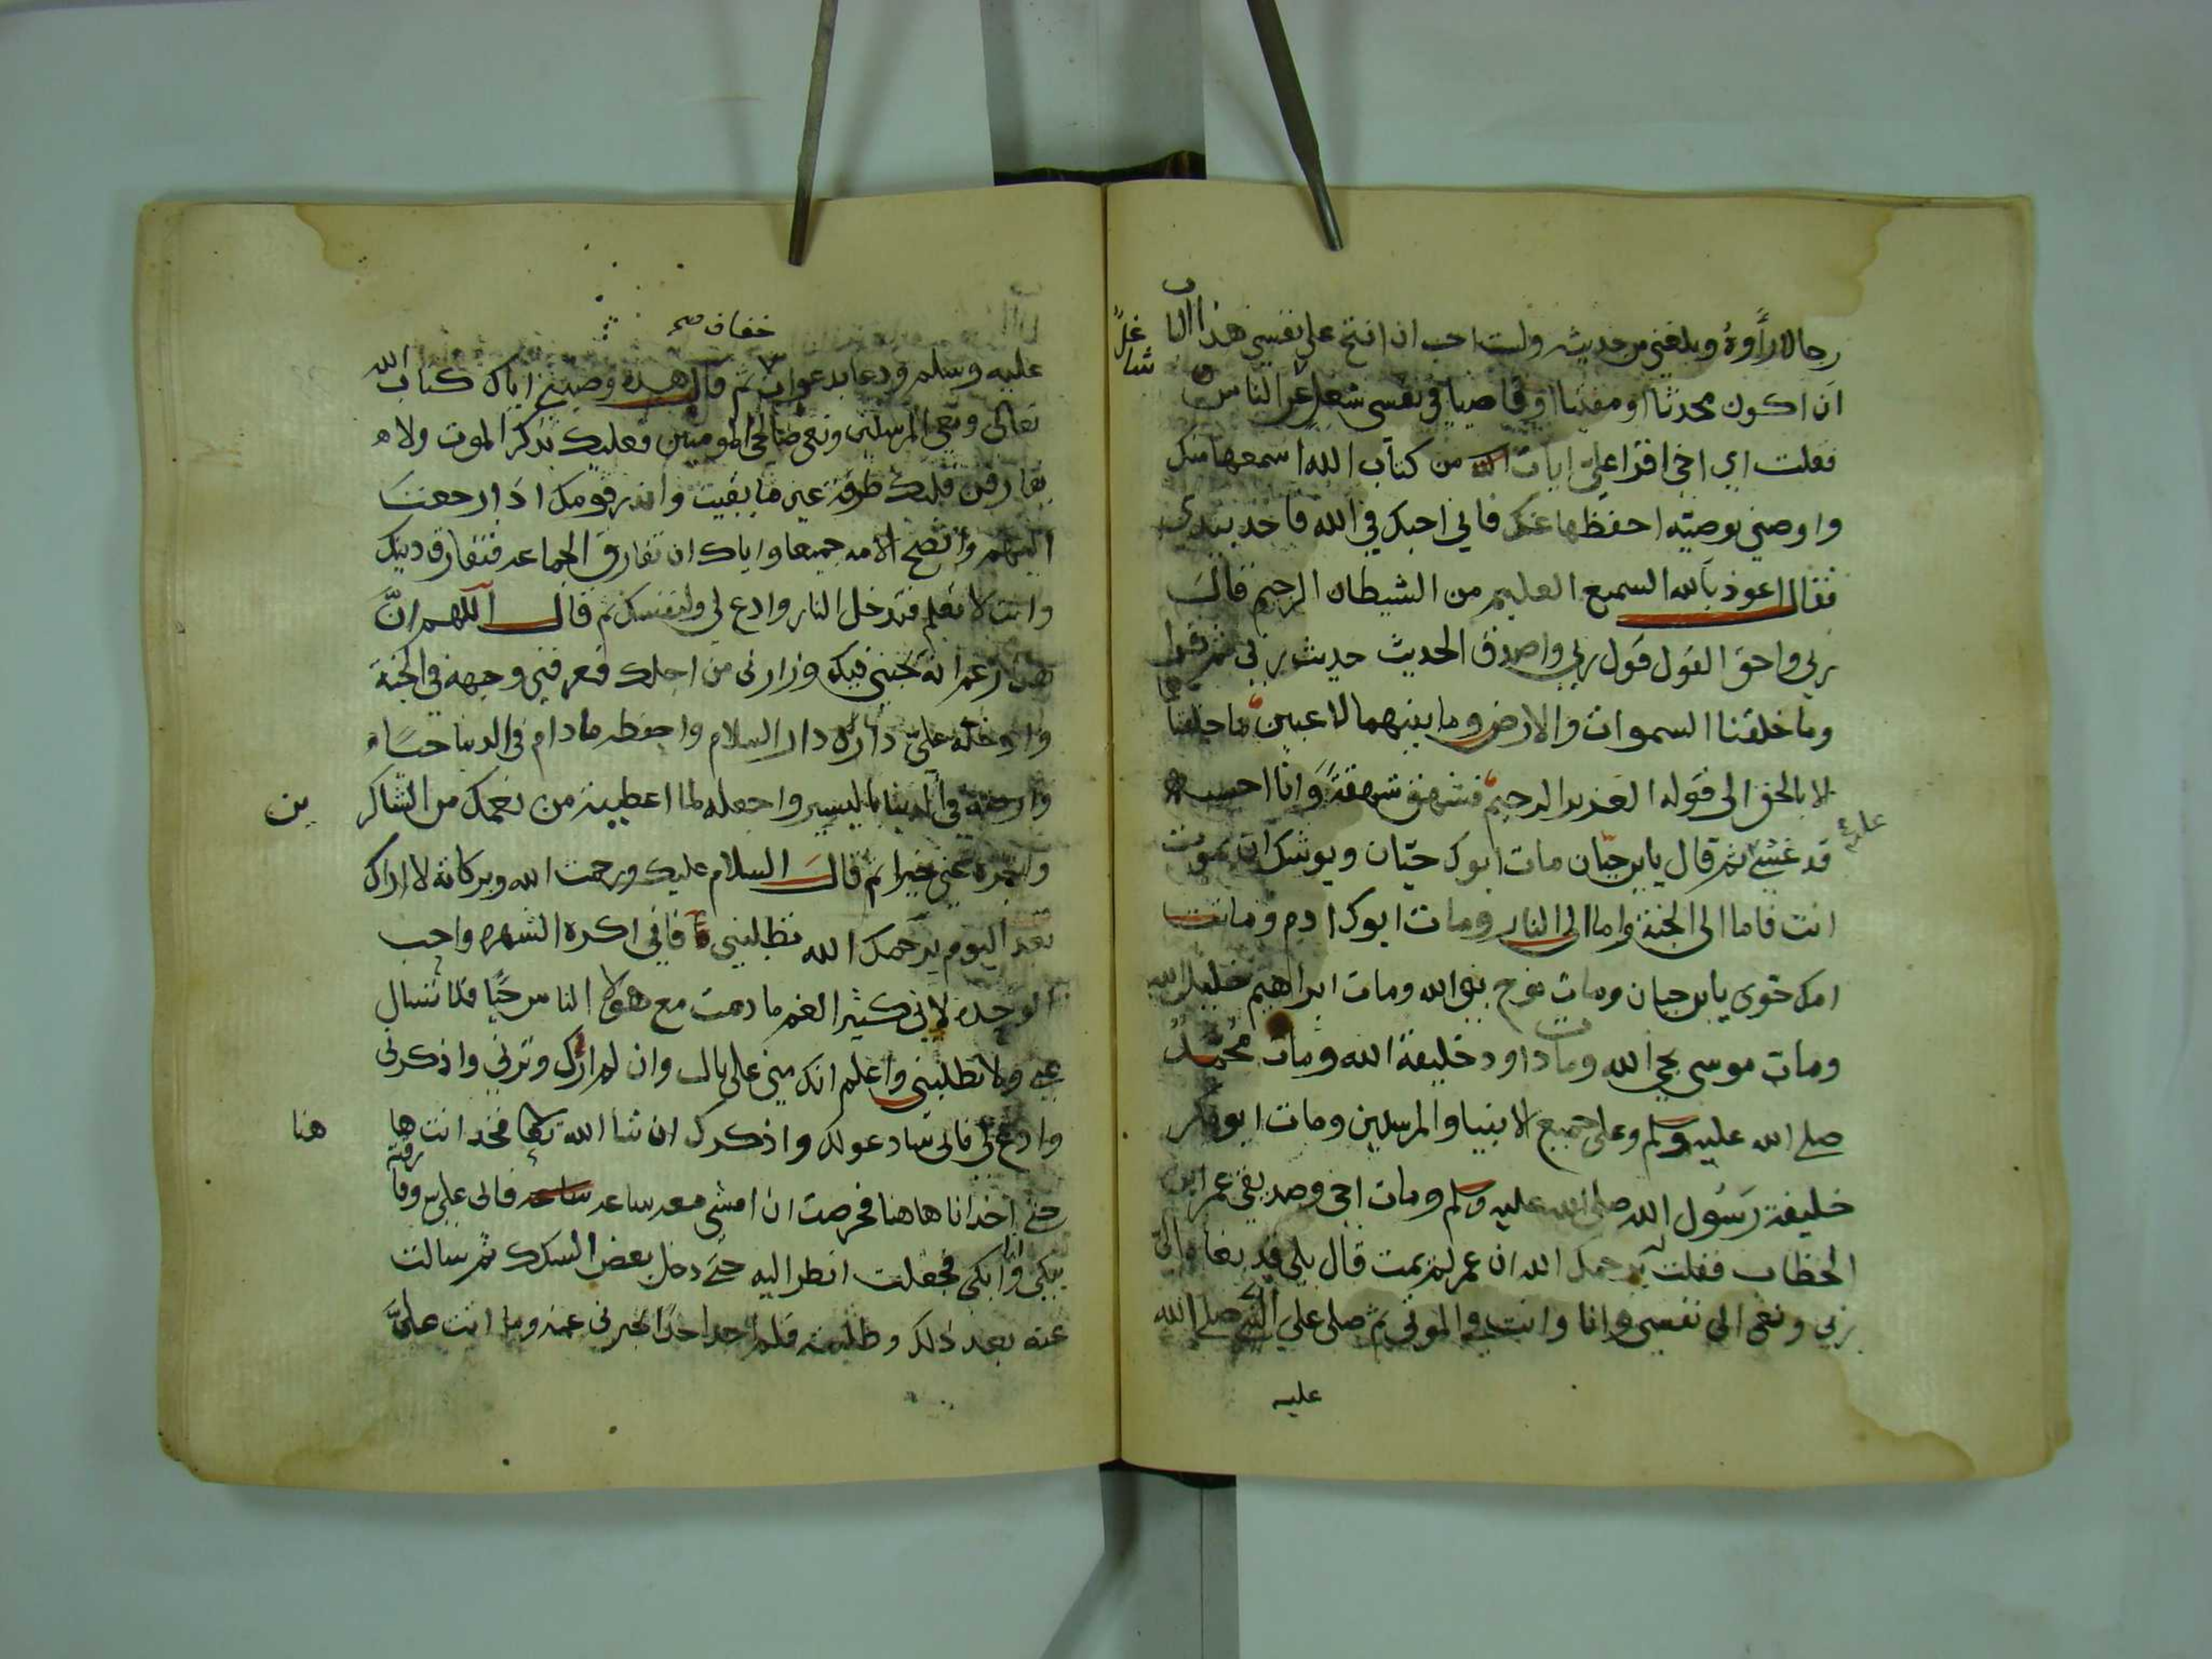 رجالا رأوه وبلغني من حديثه ولست احب ان افتح على نفسي هذا الباب
ان اكون محدثا او مفتيا او قاصيا في نفسي شغل عن الناس
شاغلً
فقلت اي اخي اقرا علىّ ايات من كتاب الله اسمعها منك
واوصني بوصيته احفظها عنك فاني احبك في الله فاخذ بيدي
فقال اعوذ بالله السميع العليم من الشيطان الرجيم قال
ربي واحق القول قول ربي واصدق الحديث حديث ربي ثم قرا
وما خلقنا السموات والارض وما بينهما لاعبين ما خلقنا
لا بالحق الى قوله العزيز الرحيم فشهق شهقةً وانا احسب
قد غشي ثم قال يابن حيّان مات ابوك حيّان ويوشك ان تموت
عليه
انت فاما الى الجنة واما الى النار ومات ابوك ادم وماتت
امك حوى يابن حيان ومات نوح نبي الله ومات ابراهيم خليل الله
ومات موسى نجي الله ومات داود خليفة الله ومات محمد
صلى الله عليه وسلم وعلى جميع الانبيا والمرسلين ومات ابو بكر
خليفة رسول الله صلى الله عليه وسلم ومات اخي وصديقي عمر ابن
الخطاب فقلت له يرحمك الله ان عمر لم يمت قال بلى قد نعاه الى
ربي ونعى الى نفسي وانا وانت في الموتى ثم صلى على النبي صلى الله
عليه
خفاف صح
عليه وسلم ودعا بدعوات ثم قال هذه وصيتي اياك كتاب الله
تعالى ونعي المرسلين ونعي صالحي المومنين وعليك بذكر الموت ولا
يفارقن قلبك طرفة عين ما بقيت وانذر قومك اذا رجعت
اليهم وانصح الامه جميعا واياك ان تفارق الجماعه فتفارق دينك
وانت لا تعلم فتدخل النار وادع لي ولنفسك ثم قال اللهم انَّ
هذا زعم انه يحبني فيك وزارني من اجلك فعرفني وجهه في الجنة
وادخله علىّ داره دار السلام واحفظه مادام في الدنيا حيًا
وارضه في الدنيا باليسير واجعله لما اعطيته من نعمك من الشاكر
ين
واجزه عني خيرا ثم قال السلام عليك ورحمت الله وبركاته لا اراك
بعد اليوم يرحمك الله تطلبني فاني اكره الشهره واحب
الوحده لاني كثير الغم مادمت مع هولا الناس حيًا فلا تسال
عني ولا تطلبني واعلم انك مني على بال وان لم اراك وترني واذكرني
وادع لي فاني سادعو لك واذكرك ان شا الله تعالى فخذ انت ها
هنا
حتى اخذ انا هاهنا فحرصت ان امشي معه ساعه فابى علي وفارقته
يبكي وانا ابكي فجعلت انظر اليه حتى دخل بعض السكك ثم سالت
عنه بعد ذلك وطلبته فلم اجد احدًا يخبرني عنه وما اتت علىَّ